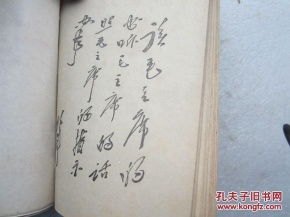 读毛主席的
书听毛主席的话
照毛主席的指示
办事
林彪
孔夫子旧书网